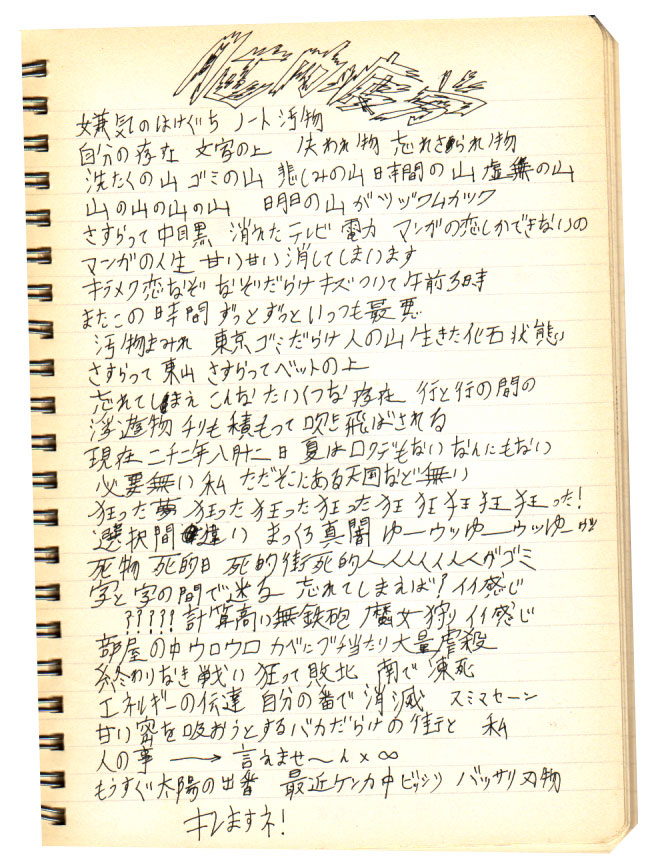 嫌気のはけぐち ノート汚物
自分の存在 文字の上 失われ物 忘れさられ物
洗たくの山 ゴミの山 悲しみの山 時間の山 虚無の山
山の山の山の山 明日の山がツヅクムカック
さすらって中目黒 消えたテレビ 電力 マンガの恋しかできないの
マンガの人生 甘い甘い消してしまいます
キラメク恋なぞ なぞだらけ キズついて 午前3時
またこの時間 ずっとずっといつも最悪
汚物まみれ 東京ゴミだらけ 人の山 生きた化石状態
さすらって 東山 さすらってベットの上
忘れてしまえ こんな たいくつな 存在 行と行の間の
浮遊物 チリも積もって 吹き飛ばされる
現在 二千二年八月十二日 夏はロクデもない なんにもない
必要無い 私 ただそこにある天国など無い
狂った夢 狂った狂った狂った狂 狂 狂 狂 狂った!
選択間違い まっくろ真闇 ゆーウッゆーウッゆー
死物 死的日 死的街 死的人人人人人人人がゴミ
字と字の間で迷る 忘れてしまえば? イイ感じ
????? 計算高い無鉄砲 魔女狩り イイ感じ
部屋の中ウロウロ カベにブチ当たり 大量虐殺
終わりなき戦い 狂って敗北 南で凍死
エネルギーの伝達 自分の番で消滅 スミマセーン
甘い密を吸おうとするバカだらけの街と 私
人の事 → 言えませ〜ん×∞
もうすぐ太陽の出番 最近ケンカ中 ビッシリ バッサリ刃物
キレますネ!